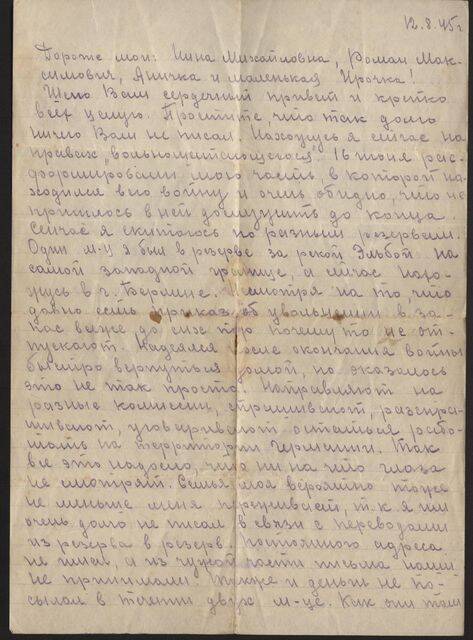 12.8.45г
Дорогие мои: Нина Михайловна, Роман Мак-
симович, Аничка и маленькая Ирочка!
Шлю Вам сердечный привет и крепко
всех целую. Простите, что так долго
ничего Вам не писал. Нахожусь я сейчас на
правах „вольношатающегося". 16 июня рас-
формировали мою часть, в которой на-
ходился всю войну и очень обидно, что не
пришлось в ней дослужить до конца.
Сейчас я скитаюсь по разным резервам.
Один м-ц я был в резерве за рекой Эльбой на
самой западной границе, а сейчас нахо-
жусь в г. Берлине. Несмотря на то, что
давно есть приказ об увольнении в за-
пас все же до сих пор почему то не от-
пускают. Надеялся после окончания войны
быстро вернуться домой, но оказалось
это не так просто. Направляют на
разные комиссии, спрашивают, расспра-
шивают, уговаривают остаться рабо-
тать на территории Германии. Так
все это надоело, что ни на что глаза
не смотрят. Семья моя вероятно тоже
не меньше меня переживает, т.к. я им
очень долго не писал в связи с переводами
из резерва в резерв. Постоянного адреса
не имел, а из чужой части письма наши
не принимали. Также и деньги не по-
сылал в течении двух м-це. Как они там